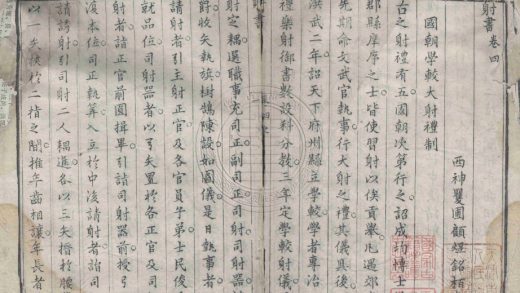 射書卷四
西神矍圃顧煜銘栢
國朝學較大射禮制
古之射禮有五國朝次第行之詔成均博士
郡縣庠序之士皆使習射以俟貢舉凡遇郊
先期命文武官執事行大射之禮其儀具後
洪武二年詔天下府州縣立學較學者專治
禮樂射御書數設科分教三年定學較射儀
射書
射定耦選職事充司正副司正司射司射器
爵收矢執旗樹鵠陳設如圖儀是日執事者
請射者引主射正官及各官員子弟士民俊
就品位司射器者以弓矢置於各正官及司
射者詣正官前圓揖畢引詣司射器前授弓
復本位司正執筭入立於中後請射者詣司
請射引司射二人耦進各以三矢搢於腰
以一矢挾於二指之間推年齒相讓年長者